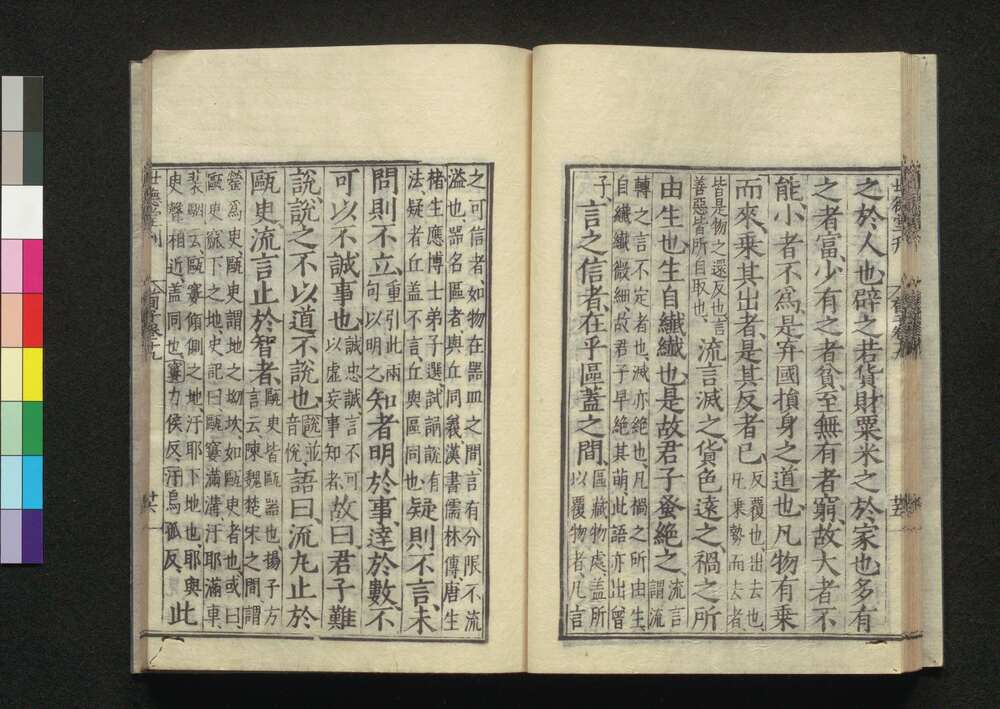 之於人也辟之若貨財粟米之於家也多有
之者富少有之者貧至無有者窮故大者不
能小者不爲是弃國損身之道也凡物有乗
而來乗其出者是其反者已反覆也出去也
凡乗勢而去者
皆是物之還反也言
善惡皆所自取也流言滅之貨色遠之禍之所
由生也生自纎纎也是故君子蚤絶之流言
謂流
轉之言不定者也滅亦絶也凡禍之所由生
自纎纎微細故君子早絶其萌此語亦出曾
子言之信者在乎區蓋之間區藏物處蓋所
以覆物者凡言
之可信者如物在器皿之間言有分限不流
溢也器名區者與丘同義漢書儒林傳唐生
楮生應博士弟子選試誦說有
法疑者丘蓋不言丘與區同也疑則不言未
問則不立重引此兩
句以明之知者明於事達於數不
可以不誠事也誠忠誠言不可
以虚妄事知者故曰君子難
說說之不以道不說也說並
音悅語曰流丸止於
甌臾流言止於智者甌臾皆甌器也揚子方
言云陳魏楚宋之間謂
罃爲臾甌臾謂地之坳坎如甌臾者也或曰
甌臾窳下之地史記曰甌窶滿溝汙耶滿車
裴駰云甌窶傾側之地汙耶下地也耶與
臾聲相近蓋同也窶力侯反汙烏孤反此